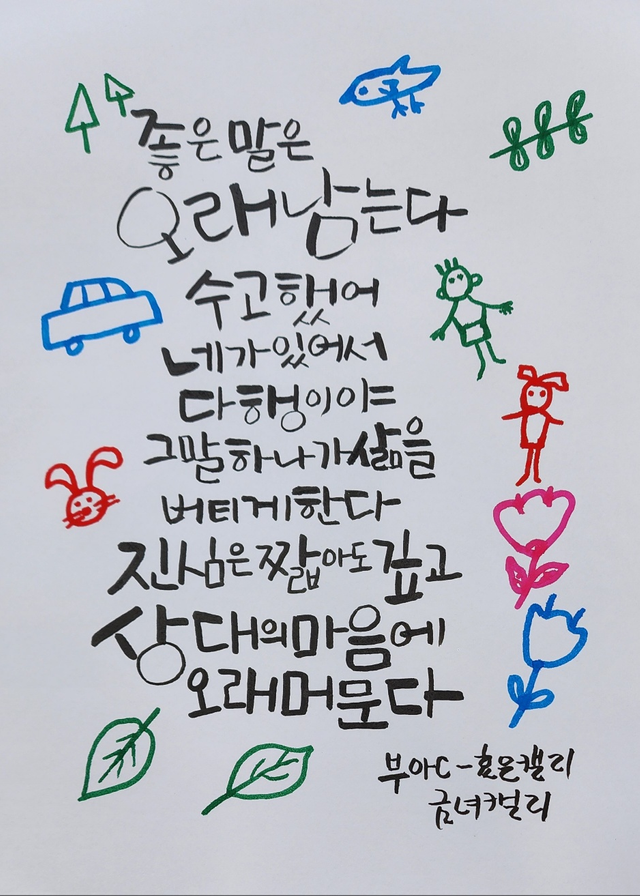 좋은 말은
오래 남는다
수고했어
네가 있어서
다행이야
그 말 하나가 삶을
버티게 한다
진심은 짧아도 깊고
상대의 마음에
오래 머문다
부아C - 효은캘리
금녀캘리